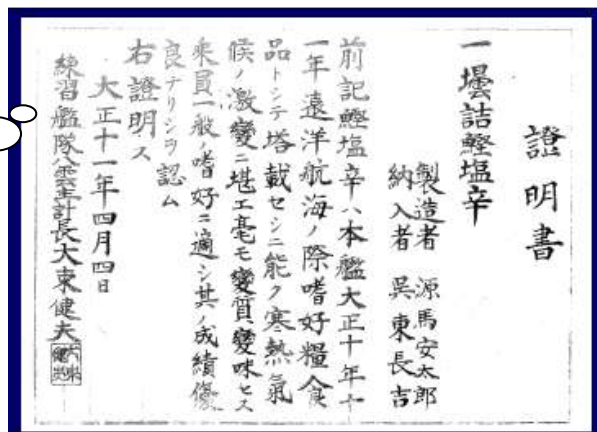 證明書
一壜詰鰹塩辛
製造者 源馬安太郎
納入者 呉東長吉
前記鰹塩辛ハ本艦大正十年十
一年遠洋航海ノ際嗜好糧食
品トシテ塔載セシニ能ク寒熱氣
候ノ激變ニ堪エ毫モ變質變味セス
乘員一般ノ嗜好ニ適シ其ノ成績優
良ナリシヲ認ム
右證明ス
大正十一年四月四日
練習艦隊八雲主計長大東健夫